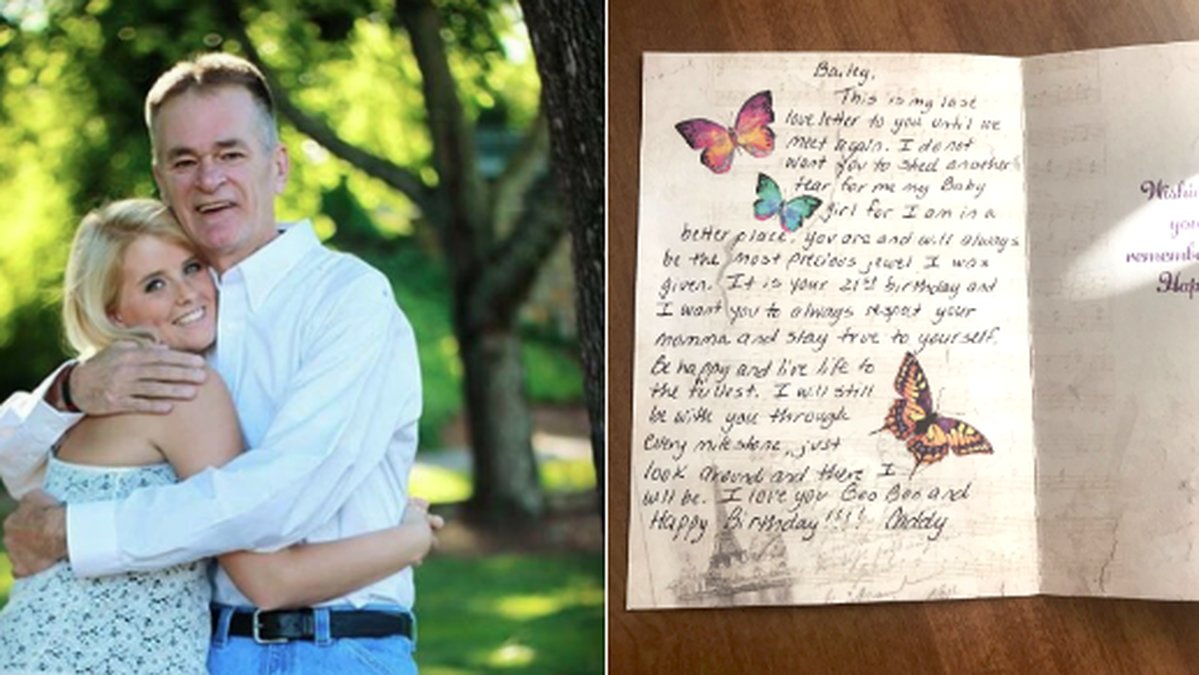 Bailey,
This is my last
love letter to you until we
meet again. I do not
want you to shed another
tear for me my Baby
girl for I am in a
better place. You are and will always
be the most precious jewel I was
given. It is your 21st birthday and
I want you to always respect your
momma and stay true to yourself.
Be happy and live life to
the fullest. I will still
be with you through
every milestone, just
look around and there I
will be. I love you Boo Boo and
Happy Birthday!!!! Daddy
Wishi
you
rememb
Hap